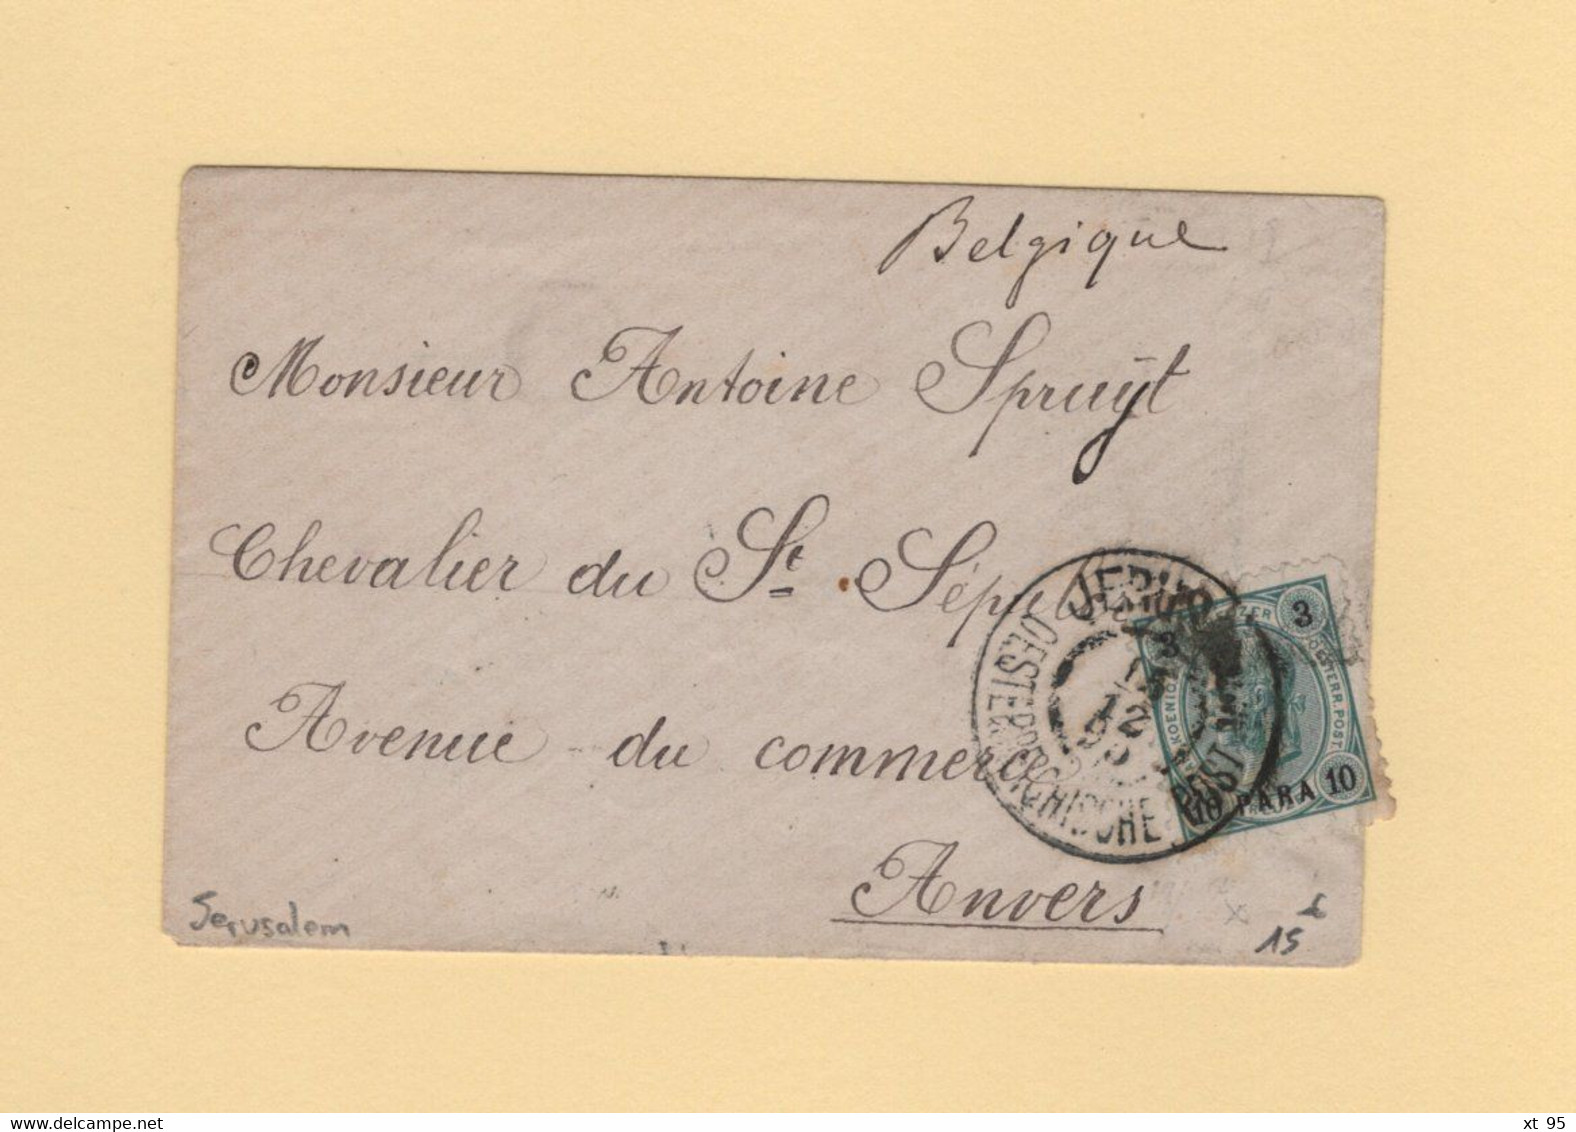 Belgique
Monsieur Antoine Spruÿt
Chevalier du St. Sépulcre
Avenue du commerce
Anvers
JERUS
OESTERREICHISCHE POST
3
12
95
3
KOENIGL. OESTERR. POST.
10 PARA 10
Jerusalem
15
delcampe.net
xt 95